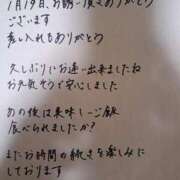 1月19日、お誘い頂きありがとう
ございます
差し入れもありがとう
久しぶりにお逢い出来ましたね
お元気そうで安心しました
あの後は美味しーご飯
食べられましたか?
またお時間の続きを楽しみに
しております